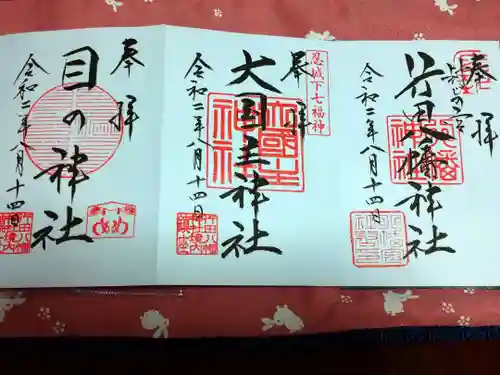 奉拝
封じの宮
行田八幡神社
令和二年八月十四日
忍城下七福神
奉拝
大国主神社
令和二年八月十四日
奉拝
目の神社
令和二年八月十四日
めめ